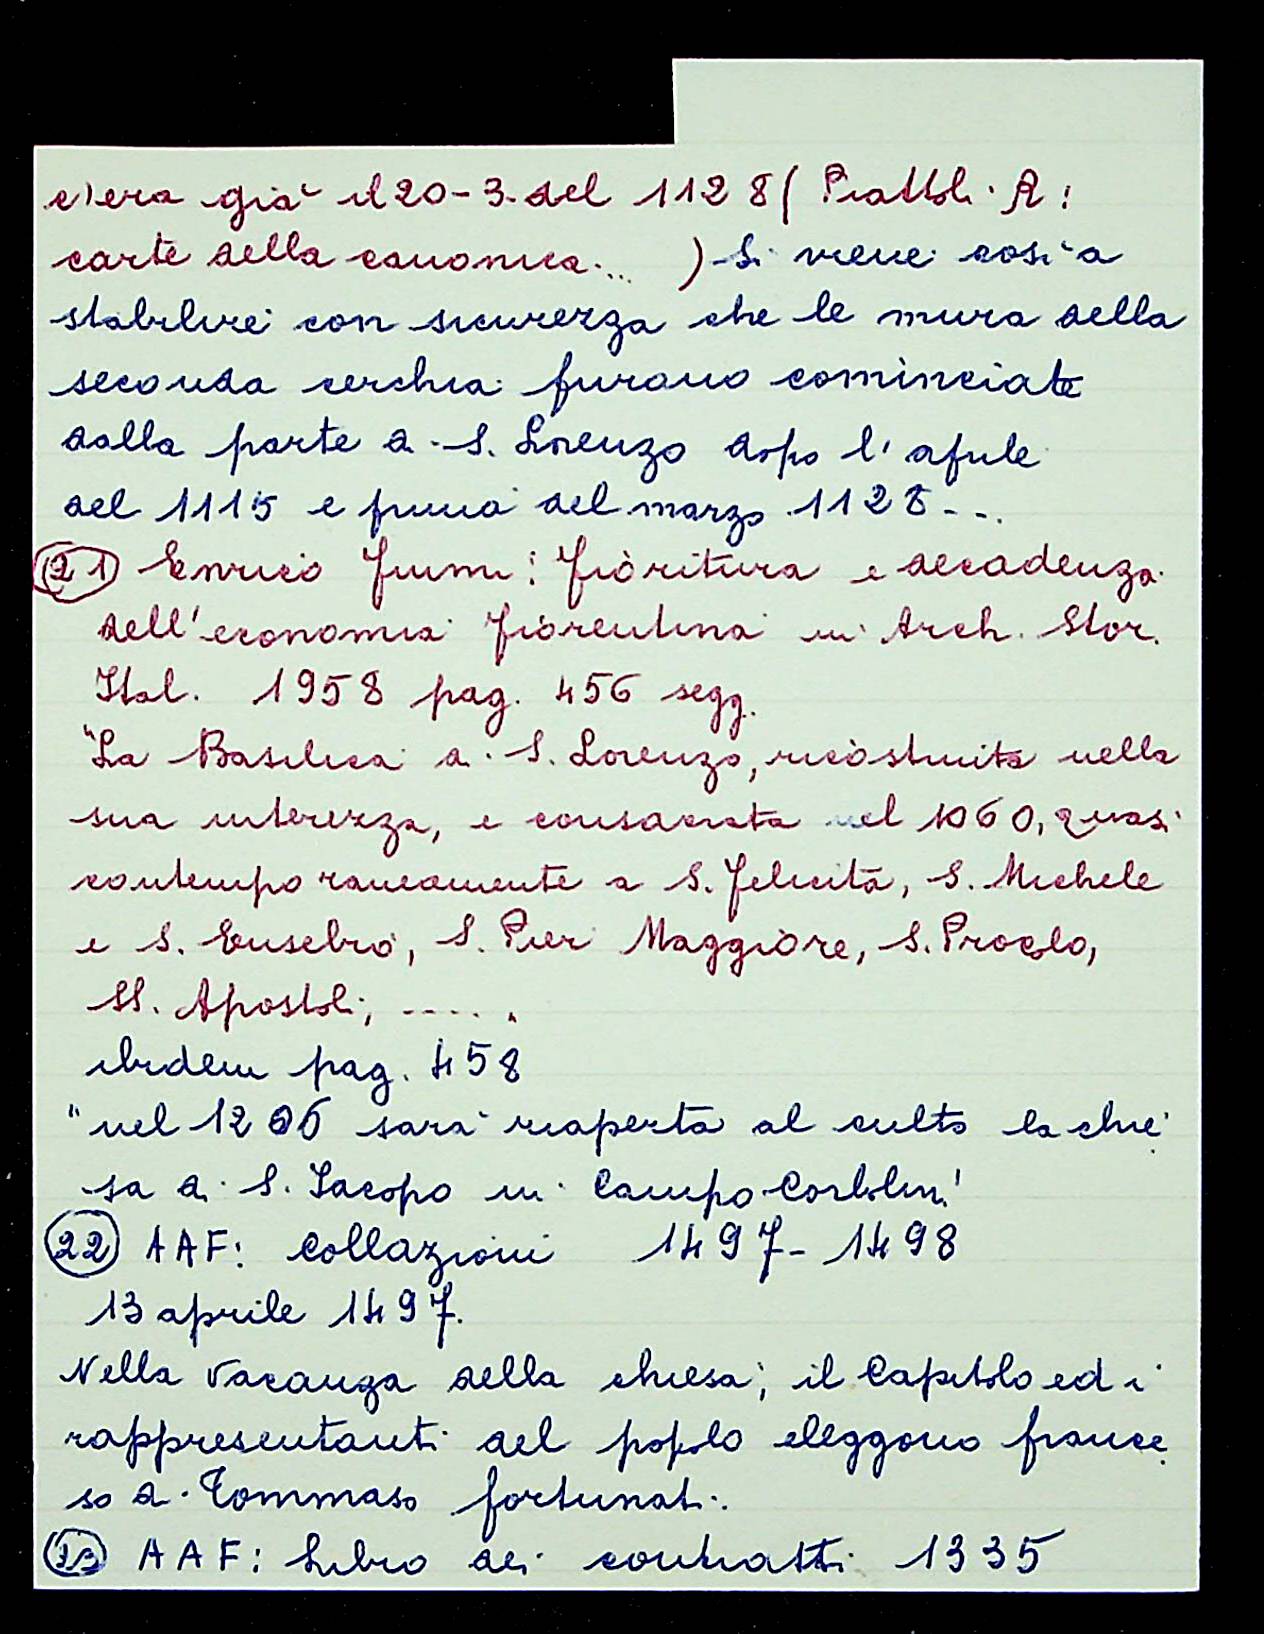 c'era già il 20-3-del 1128 ( Piattoli. R:
carte della canonica.... ) Si viene così a
stabilire con sicurezza che le mura della
seconda cerchia furono cominciate
dalla parte di S. Lorenzo dopo l'aprile
del 1115 e prima del marzo 1128 - ..
(21) Enrico Fiumi: Fioritura e decadenza
dell'economia fiorentina in Arch. Stor.
Ital. 1958 pag. 456 segg.
"La Basilica di S. Lorenzo, ricostruita nella
sua interezza, e consacrata nel 1060, quasi
contemporaneamente a S. Felicità, S. Michele
e S. Eusebio, S. Pier Maggiore, S. Procolo,
SS. Apostoli, .....
ibidem pag. 458
"nel 1206 sarà riaperta al culto la chie
sa di S. Iacopo in Campo Corbolini"
(22) AAF: Collazioni 1497-1498
13 aprile 1497.
Nella vacanza della chiesa, il Capitolo ed i
rappresentanti del popolo eleggono France
so di Tommaso Fortunati.
(23) AAF: Libro dei contratti 1335